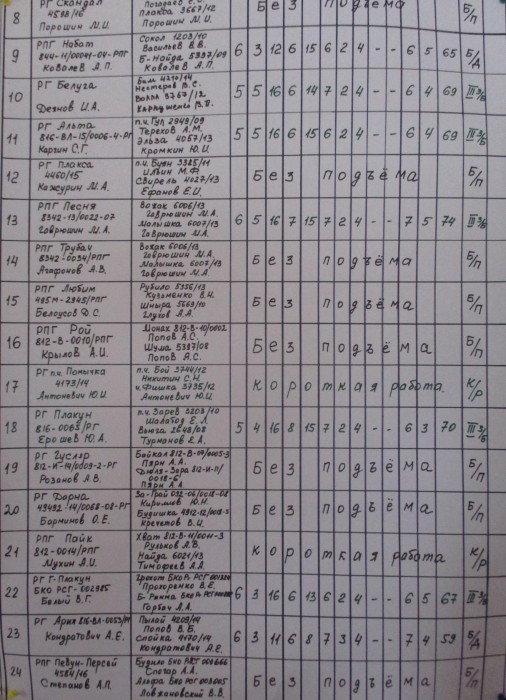 8 РГ Скандал
4598/16
Порошин М.И.
Плакса 3667/12
Порошин М.И.
Без подъёма Б/П
9 РПГ Набат
844-11/00041-04-РПГ
Ковалев А.П.
Сокол 1203/10
Васильев В.В.
Б-Найда 5337/09
Ковалев А.П.
6 3 12 6 15 6 2 4 - - 6 5 65 Б/Д
10 РГ Белуга
Дезнов И.А.
Бим 4210/14
Нестеров В.С.
Волга 3767/12
5 5 16 6 14 7 2 4 - - 6 4 69 III 3/Б
11 РГ Альта
816-ВЛ-15/0006-4-РГ
Каргин С.Г.
п.ч. Гул 2949/09
Терехов А.М.
Эльза 4057/13
Кромкин Ю.И.
5 5 16 6 15 6 2 4 - - 6 4 69 III 3/Б
12 РПГ Плакса
4460/15
Кажурин М.А.
п.ч. Буян 3385/11
Ильин М.Ф.
Свирель 4027/13
Ефанов Е.И.
Без подъёма Б/П
13 РПГ Песня
8342-13/0022-07
Гаврюшин М.А.
Вожак 6006/13
Гаврюшин М.А.
Малышка 6007/13
Гаврюшин М.А.
6 5 16 7 15 7 2 4 - - 7 5 74 III 3/Б
14 РПГ Трубач
8342-0034/РПГ
Агафонов А.В.
Вожак 6006/13
Гаврюшин М.А.
Малышка 6007/13
Гаврюшин М.А
Без подъёма Б/П
15 РПГ Любим
495М-2345/РПГ
Белоусов Д.С.
Рубило 5356/13
Кузьменко В.Н.
Шныра 5669/10
Глухов А.А.
Без подъёма Б/П
16 РПГ Рой
812-В-0010/РПГ
Крылов А.И.
Монах 812-В-10/0002
Попов А.С.
Шума 5387/08
Попов А.С.
Без подъёма Б/П
17 РГ п.ч. Помычка
4173/14
Антоневич Ю.И.
п.ч. Бой 3744/12
Никитин С.Н.
ч.Фишка 3735/12
Антоневич Ю.И.
Короткая работа. К/Р
18 РГ Плакун
816-0068/РГ
Ерошев Ю.А.
п.ч. Зорев 3203/10
Шолабод Е.Л.
Вьюга 2648/08
Турманов Е.А.
5 4 16 8 15 7 2 4 - - 6 3 70 III 3/Б
19 РГ Гусляр
812-И-14/0009-2-РГ
Розанов А.В.
Байкал 812-В-09/0005-3
Пярн А.А.
Пярн А.А.
Без подъёма Б/П
20 РГ Дорна
49492-14/0068-08-РГ
Барминов О.Е.
За-Грай 032-06/0018-08
Кирилюв Ю.Н.
Будишка 4912-12/0018-3
Кречетов В.И.
Без подъёма Б/П
21 РПГ Пайк
812-0014/РПГ
Мухин А.И.
Хват 812-В-11/0011-3
Рульков А.В.
Найда 6021/13
Тимофеев А.А.
Короткая работа К/Р
22 РГ Г-Плакун
БКО РСГ-002985
Белый В.Г.
Прохоренко В.Е.
Горбач А.А.
6 3 16 6 13 6 2 4 - - 6 5 67 III 3/Б
23 РГ Ария 816-ВЛ-0053/РГ
Кондратович А.Е.
Пылай 4209/14
Попов В.Б.
Слойка 4170/14
Кондратович А.Е.
6 3 11 6 8 7 3 4 - - 7 4 59 Б/Д
24 РПГ Певун-Персей
4584/16
Степанов А.П.
Спегар А.А.
Ловжановский В.В.
Без подъёма Б/П